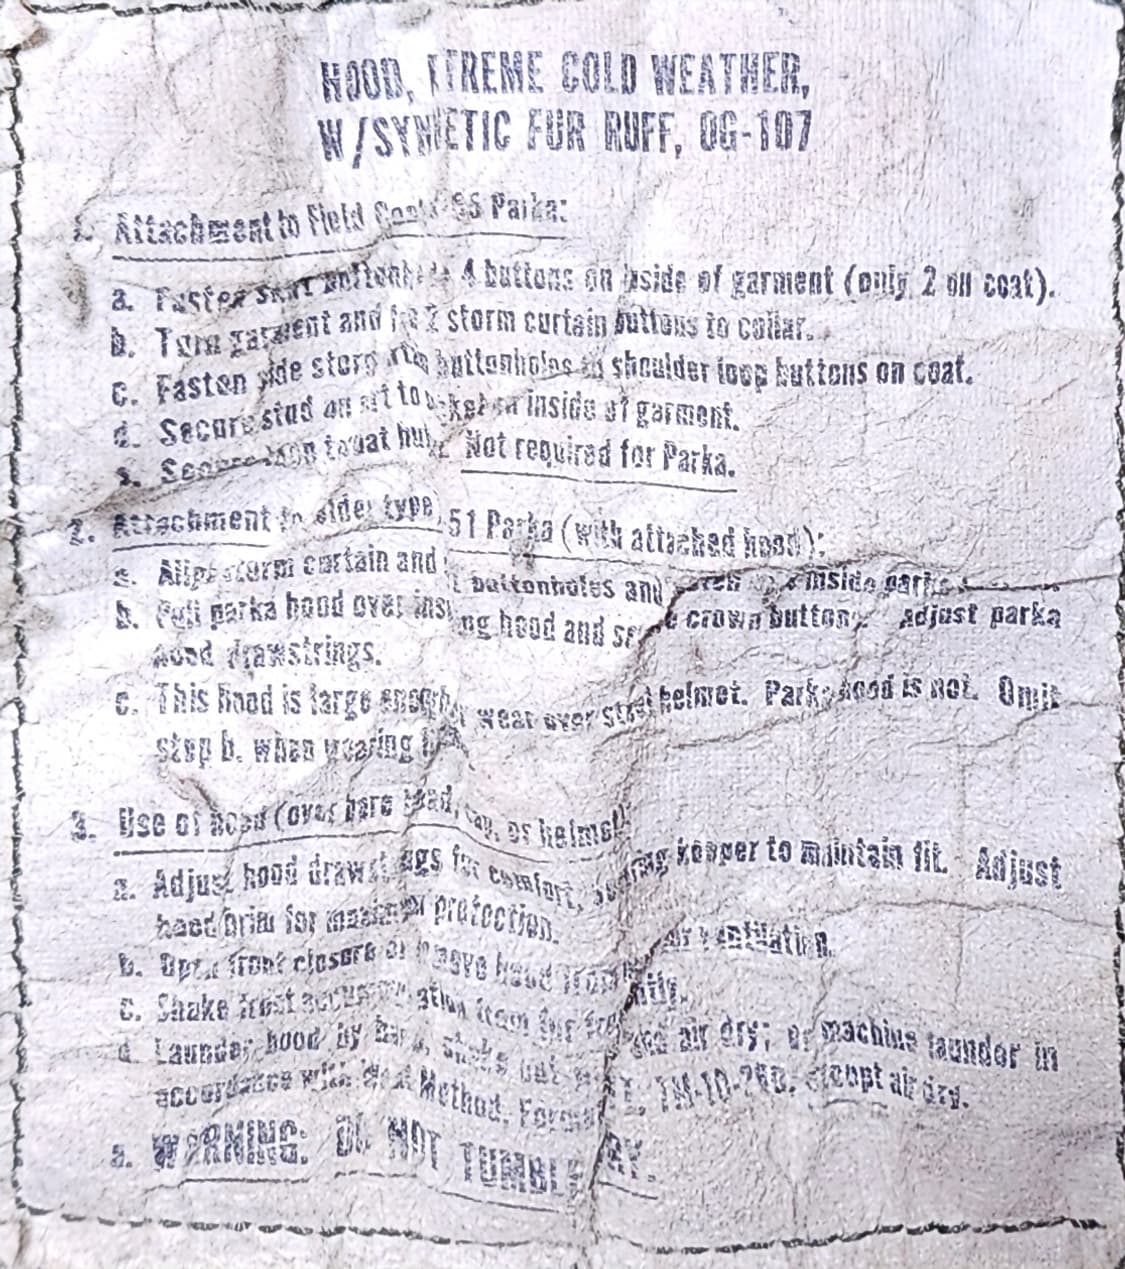 HOOD, XTREME COLD WEATHER,
W/SYNTETIC FUR RUFF, OG-107
1. Attachment to Field Coat 65 Parka:
a. Fasten skirt buttonholes 4 buttons on inside of garment (only 2 on coat).
b. Turn garment and 2 storm curtain buttons to collar.
c. Fasten side storm buttonholes to shoulder loop buttons on coat.
d. Secure stud on inside of garment.
e. Secure loop Not required for Parka.
2. Attachment to older type, 51 Parka (with attached hood):
a. Align storm curtain and buttonholes and inside parka
b. Pull parka hood over hood and crown button. Adjust parka
hood drawstrings.
c. This hood is large enough wear over steel helmet. Parka hood is not. Omit
step b. when wearing
3. Use of hood (over bare head, cap, or helmet)
a. Adjust hood drawstrings for comfort, keeper to maintain fit. Adjust
hood brim for maximum protection.
b. Open front closure or remove hood from ventilation.
c. Shake frost accumulation from fur
d. Launder hood by hand, shake out and air dry; or machine launder in
accordance with Method, Formula TM-10-280, except air dry.
e. WARNING: DO NOT TUMBLE DRY.